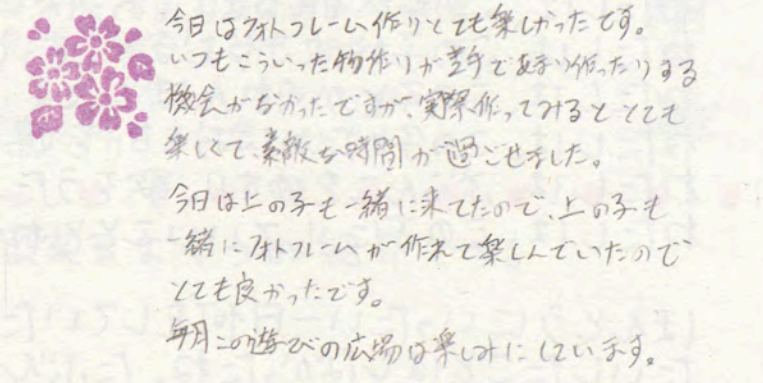 今日はフォトフレーム作りとても楽しかったです。
いつもこういった物作りが苦手であまり作ったりする
機会がなかったですが、実際作ってみるととても
楽しくて、素敵な時間が過ごせました。
今日は上の子も一緒に来てたので、上の子も
一緒にフォトフレームが作れて楽しんでいたので
とても良かったです。
毎月この遊びの広場は楽しみにしています。